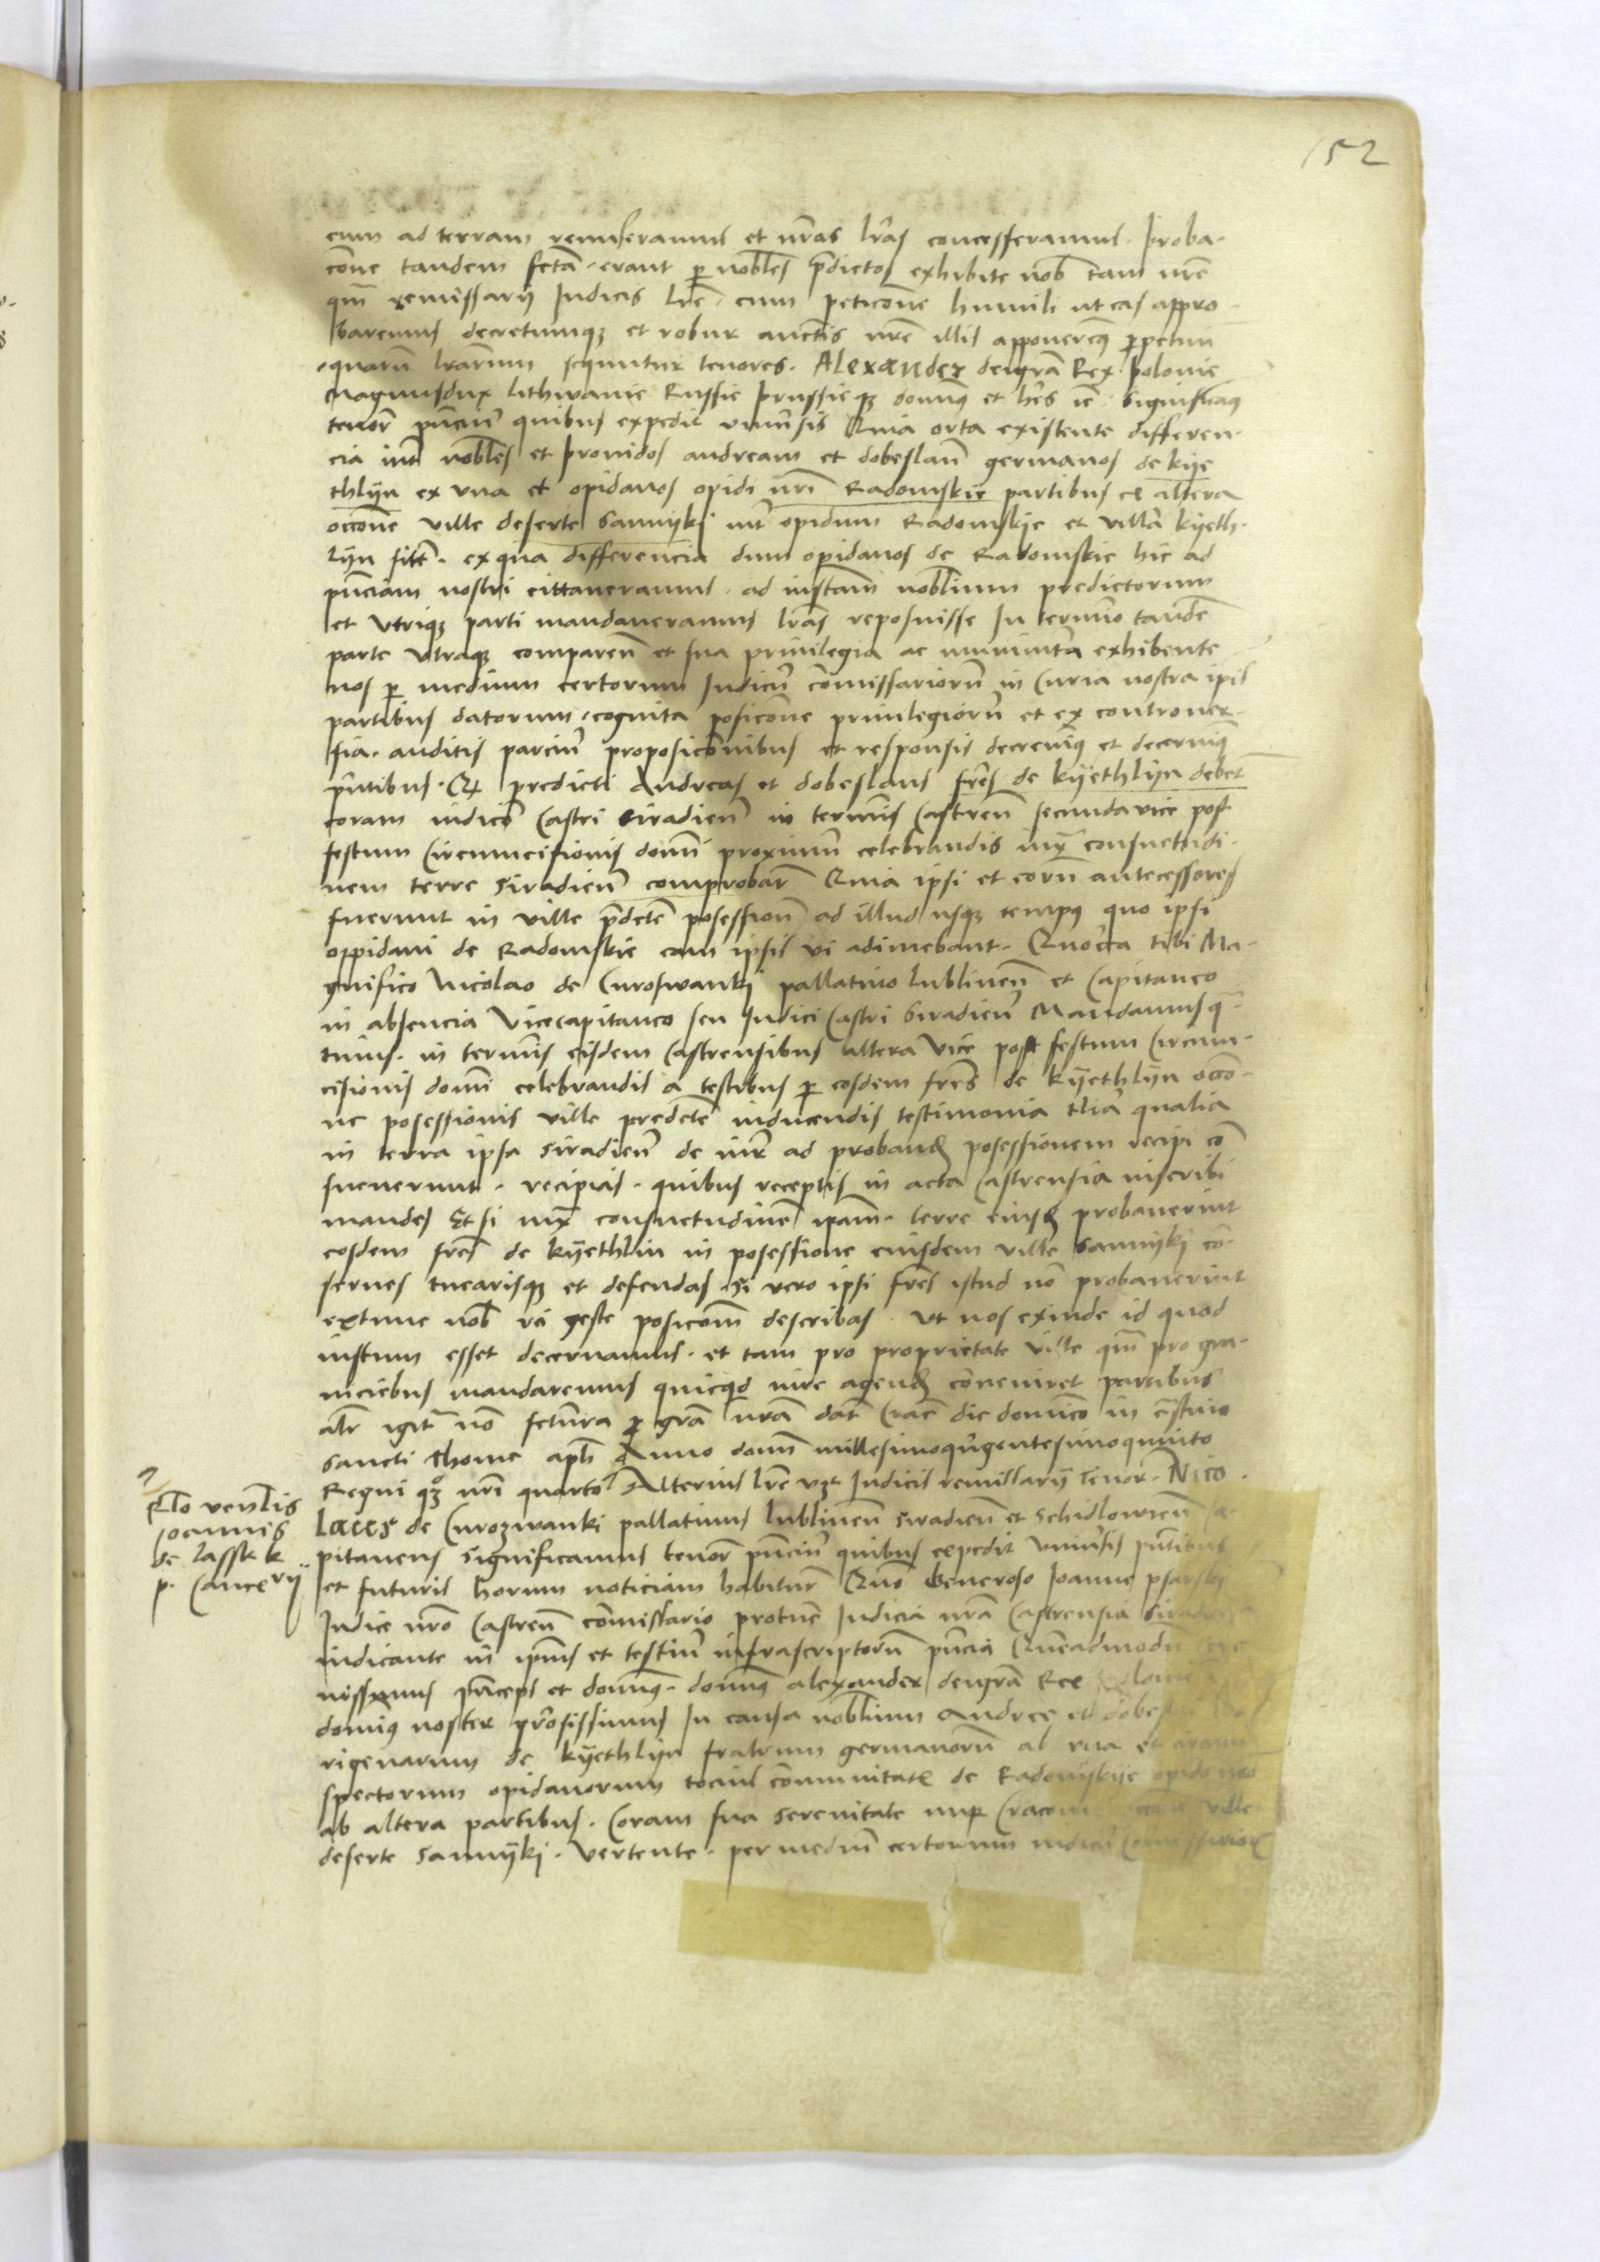 152
eum ad terram remiseramus et nr̃as lr̃as concesseramus. proba-
cõne tandem fc̃tã. erant p nobiles p̃dictos exhibite nob̃ tam nr̃e
qm̃ remissarij Iudicis lr̃e. cum peticõne humili ut eas appro-
baremus decretumqz et robur auctis nr̃e illis apponeremꝰ ꝑpetuũ
quarũ lr̃arum sequntur tenores. Alexander deigrã Rex polonie
Magnusdux lithwanie Russie prussieqz domĩnꝰ et hẽs zc̃. Significamꝰ
tenor̃ pñcium quibus expedit vniuersis Quia orta existente differen-
cia inter nobiles et prouidos andream et dobeslaũ germanos de kije
thlijn ex vna et opidanos opidi nr̃i Radomskie partibus ex altera
occõne ville deserte sannijki int̃ opidum Radomskije et villã kijeth-
lijn sitẽ. ex qua differencia dum opidanos de Radomskie hic ad
pñciam nostri cittaueramus. ad instãm nobilium predictorum
et vtriqz parti mandaueramus lr̃as reposuisse In termĩo tandẽ
parte vtraqz comparen̄ et sua priuilegia ac munimta exhibente
nos p medium certorum Iudicũ comissariorũ in Curia nostra ip̃is
partibus datorum, cognita posicõne priuilegiorũ et ex controuer-
sia. auditis parciũ proposicõnibus et responsis decreuimꝰ et decernimꝰ
pñtibus. Qz predicti Andreas et dobeslaus frẽs de kijethlijn debent
coram iudicio Castri Siradien̄ in termĩs Castren̄ secunda vice post
festum Circumcisionis domĩ proximũ celebrandis iuxta consuetudi-
nem terre Siradien̄ comprobare Quia ipsi et eorũ antecessores
fuerunt in ville p̃dcte posession̄ ad illud usqz tempus quo ipsi
oppidani de Radomskie eam ipsis vi adimebant. Quocirca tibi Ma-
gnifico Nicolao de Curoswanki pallatino lublinen̄ et Capitaneo
in absencia Vicecapitaneo seu Iudici Castri Siradien̄ Mandamus q̃-
tinus. in termĩs eisdem Castrensibus altera vice post festum Circum-
cisionis domĩ celebrandis a testibus p eosdem frẽs de kijethlijn occõ-
ne posessionis ville predcte inducendis testimonia talia qualia
in terra ipsa siradien̄ de iure ad proband̄ posessionem recipi cõ-
sueuerunt. recipias. quibus receptis in acta Castrensia inscribi
mandes Et si iuxta consuetudinẽ ipam̃. terre eiusd̃ probauerint
eosdem frẽs de kijethlin in posessione eiusdem ville sannijki cõ-
serues tuearisqz et defendas Si vero ipsi frẽs istud nõ probauerint
extunc nob̃ rei geste posicõm describas. Vt nos exinde id quod
iustum esset decernamus. et tam pro proprietate ville qm̃ pro gra-
niciebus mandaremus quicqid iure agend̃ conueniret partibus
alr̃ igit̃ nõ fctura ꝓ grã nrã dat̃ Crac̃ die domico in crastino
sancti Thome apl̃i Anno domĩ millesimoquingentesimoquinto
Regni qz nr̃i quarto Alterius lr̃e vz̃ Iudicis remissarij tenor. Nico-
laus de Curozwanki pallatinus lublinen̄ siradien̄ et schidlowien̄ Ca-
pitaneus Significamus tenor̃ pñciũ quibus expedit vniuersis pñtibus
et futuris horum noticiam habitur̃ Quõ Generoso Ioanne psarski
Iudice nr̃o Castren̄ comissario protunc Iudicia nrã Castrensia siradien̄
iudicante in ipsius et testiũ infrascriptorũ pñcia Quẽadmodũ Sere-
nissimus princeps et domĩnꝰ. domĩnꝰ alexander deigrã Rex polonie
domĩnꝰ noster grosissimus In causa nobilium Andree et dobeslai
rigenarum de kijethlijn fratrum germanorũ ab vna et circum-
spectorum opidanorum tociusꝫ communitatẽ de Radomskije opido nr̃o
ab altera partibus. Coram sua serenitate nup̃ Cracouie occõne ville
deserte sannijki. vertente. per mediũ certorum iudicũ comissarior̃
Rlo venl̃is
Ioannis
de lassk k
p. Cancrij